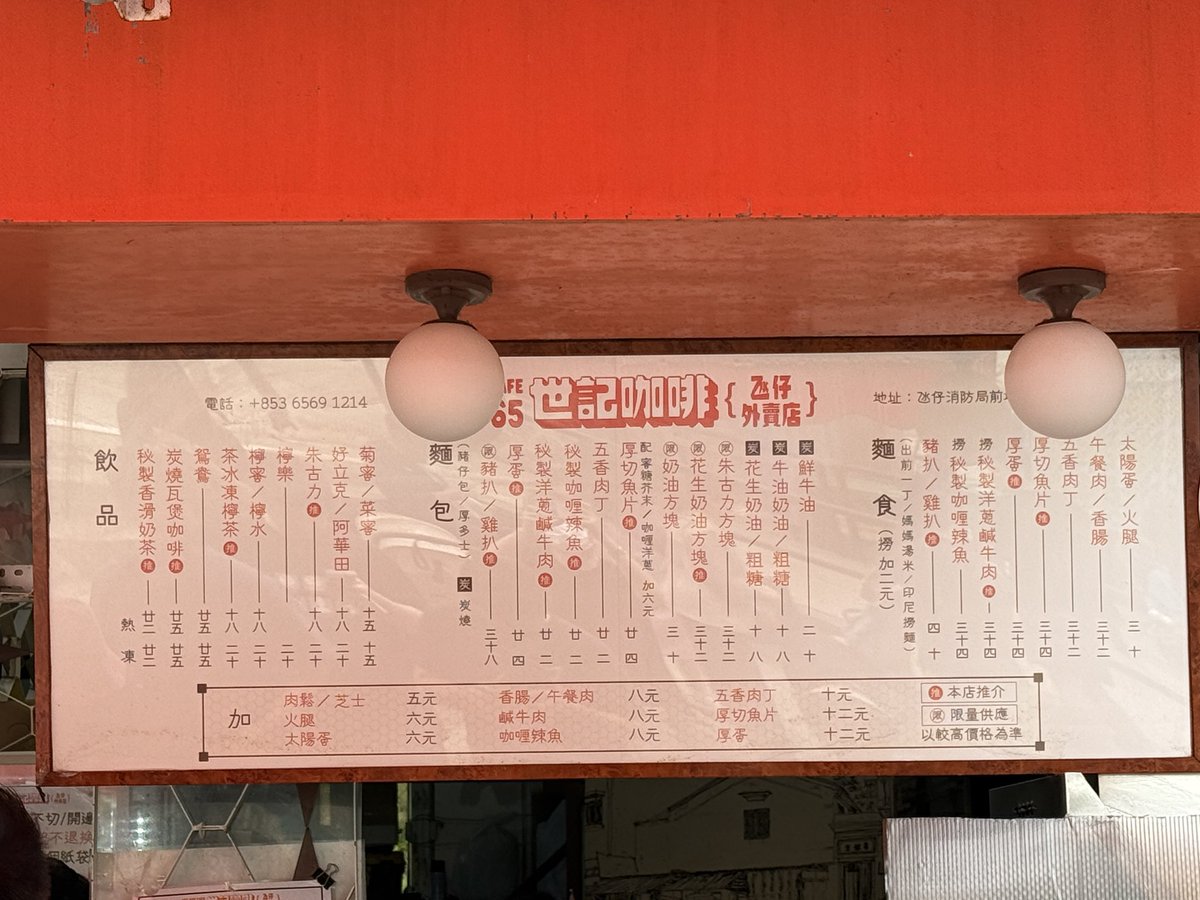 電話：+853 6569 1214
世記咖啡
{氹仔外賣店}
地址：氹仔消防局前
飲品
熱 凍
秘製香滑奶茶 推 廿二 廿二
炭燒瓦煲咖啡 推 廿五 廿五
鴛鴦 廿五 廿五
茶冰凍檸茶 推 十八 二十
檸蜜／檸水 十八 二十
檸樂 二十
朱古力 推 十八 二十
好立克／阿華田 十八 二十
菊蜜／菜蜜 十五 十五
麵包
(豬仔包／厚多士)
炭 炭燒
限 豬扒／雞扒 推 三十八
厚蛋 推 廿四
秘製洋蔥鹹牛肉 推 廿二
秘製咖喱辣魚 推 廿二
五香肉丁 廿二
厚切魚片 推 廿四
配 蜜糖芥末／咖喱洋蔥 加六元
限 奶油方塊 三十
限 花生奶油方塊 推 三十二
限 朱古力方塊 三十二
炭 花生奶油／粗糖 十八
炭 牛油奶油／粗糖 十八
炭 鮮牛油 二十
麵食
(撈加二元)
(出前一丁／媽媽湯米／印尼撈麵)
豬扒／雞扒 推 四十
撈 秘製咖喱辣魚 三十四
撈 秘製洋蔥鹹牛肉 推 三十四
厚蛋 推 三十四
厚切魚片 推 三十四
五香肉丁 三十二
午餐肉／香腸 三十二
太陽蛋／火腿 三十
加
肉鬆／芝士 五元 香腸／午餐肉 八元 五香肉丁 十元
火腿 六元 鹹牛肉 八元 厚切魚片 十二元
太陽蛋 六元 咖喱辣魚 八元 厚蛋 十二元
推 本店推介
限 限量供應
以較高價格為準
不切/開邊
不退換
紙袋